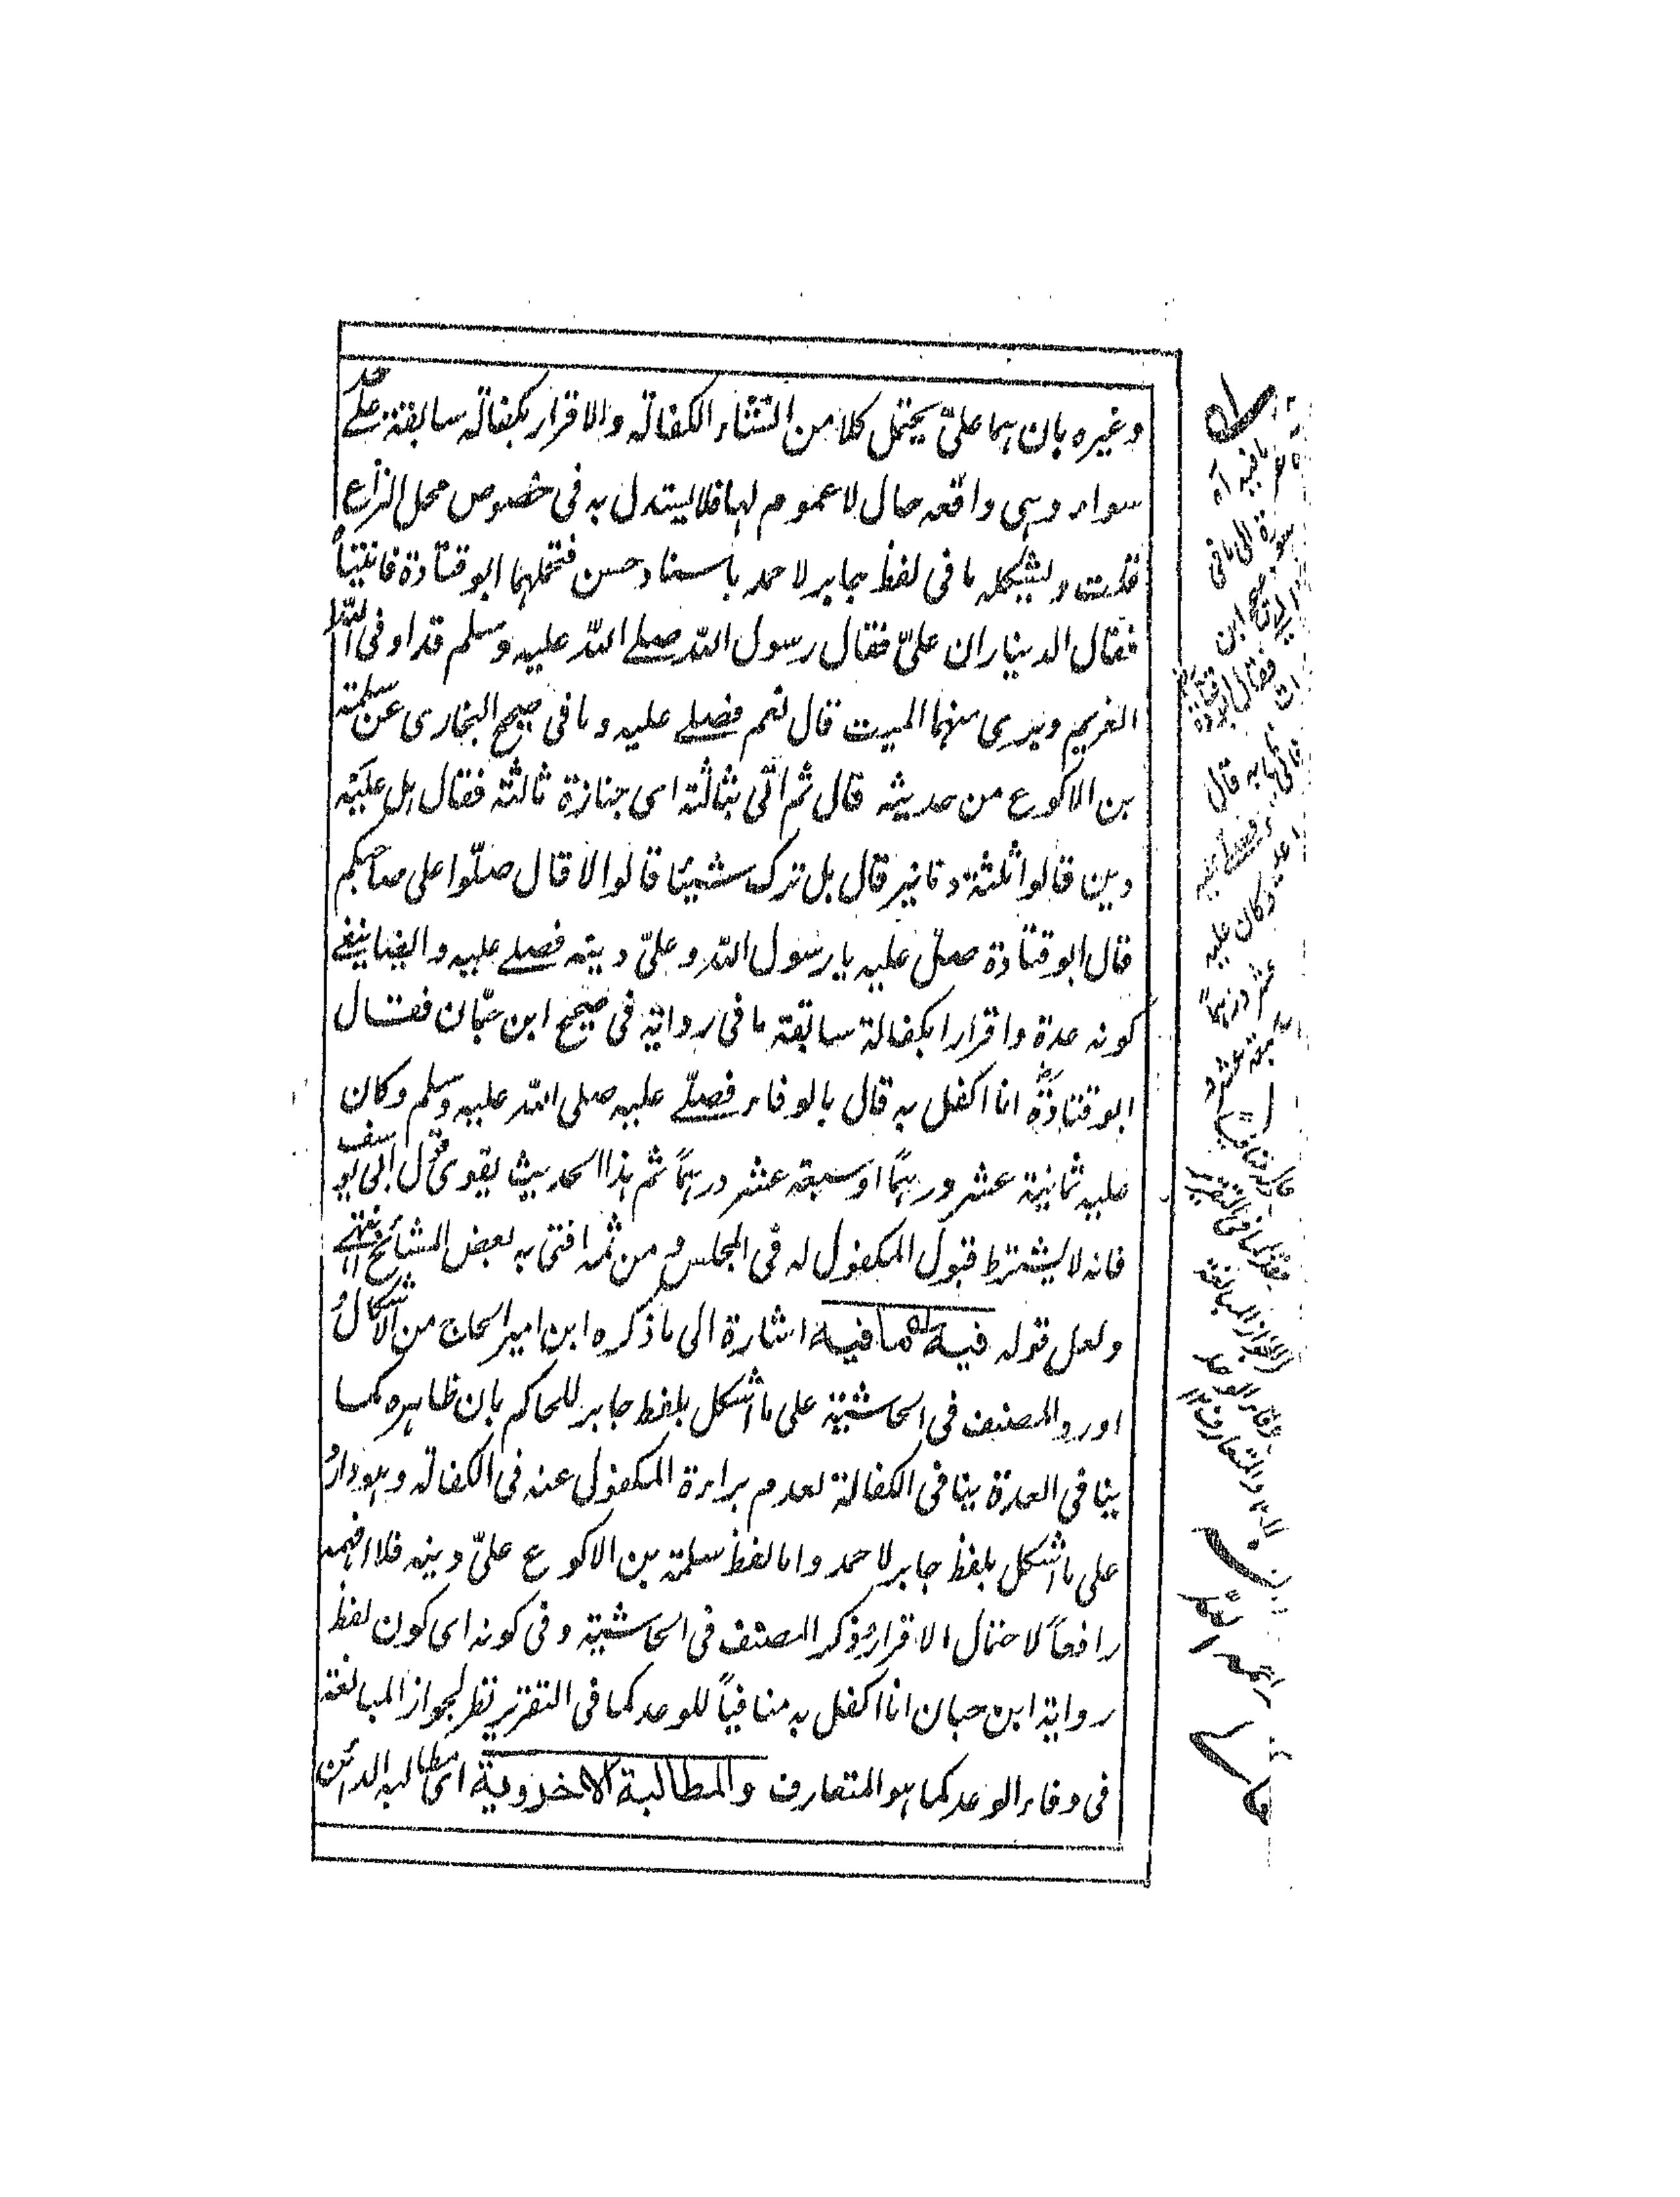 وغيره بان هما علىّ يحتمل كلا من انشاء الكفالة والاقرار بكفالة سابقة على حد
سواء وهى واقعة حال لا عموم لها فلا يستدل به فى خصوص محل النزاع
قلت ويشكله ما فى لفظ جابر لاحمد باسناد حسن فتحملهما ابو قتادة فاتيناه
فقال الديناران علىّ فقال رسول الله صلى الله عليه وسلم قد اوفى الله
الغريم وبرى منهما الميت قال نعم فصلى عليه وما فى صحيح البخارى عن سلمة
بن الاكوع من حديثه قال ثم اتى بثالثة اى جنازة ثالثة فقال هل عليه
دين قالوا ثلثة دنانير قال هل ترك شيئا قالوا لا قال صلّوا على صاحبكم
قال ابو قتادة صل عليه يا رسول الله وعلىّ دينه فصلى عليه وايضا ينفى
كونه عدة واقرارا بكفالة سابقة ما فى رواية فى صحيح ابن حبّان فقال
ابو قتادة انا اكفل به قال بالوفاء فصلّى عليه صلى الله عليه وسلم وكان
عليه ثمانية عشر درهمًا او سبعة عشر درهمًا ثم هذا الحديث يقوى قول ابى يوسف
فانه لا يشترط قبول المكفول له فى المجلس ومن ثمه افتى به بعض المشائخ انتهى
ولعل قوله فيه ما فيه اشارة الى ما ذكره ابن امير الحاج من الاشكال و
اورد المصنف فى الحاشية على ما اشكل بلفظ جابر للحاكم بان ظاهره كما
ينافى العدة ينافى الكفالة لعدم براءة المكفول عنه فى الكفالة وهو وارد
على ما اشكل بلفظ جابر لاحمد واما لفظ سلمة بن الاكوع علىّ دينه فلا افهمه
رافعاً لاحتمال الاقرار وذكر المصنف فى الحاشية وفى كونه اى كون لفظ
رواية ابن حبان انا اكفل به منافياً للوعد كما فى التقرير نظر لجواز المبالغة
فى وفاء الوعد كما هو المتعارف والمطالبة الاخروية اى مطالبة الدائن
ما فيه آه
الى ما فى
ابن
فقال ابو قتادة
به قال
فصلى عليه
وكان عليه
عشر درهماً
فى التقرير
والمتعارف